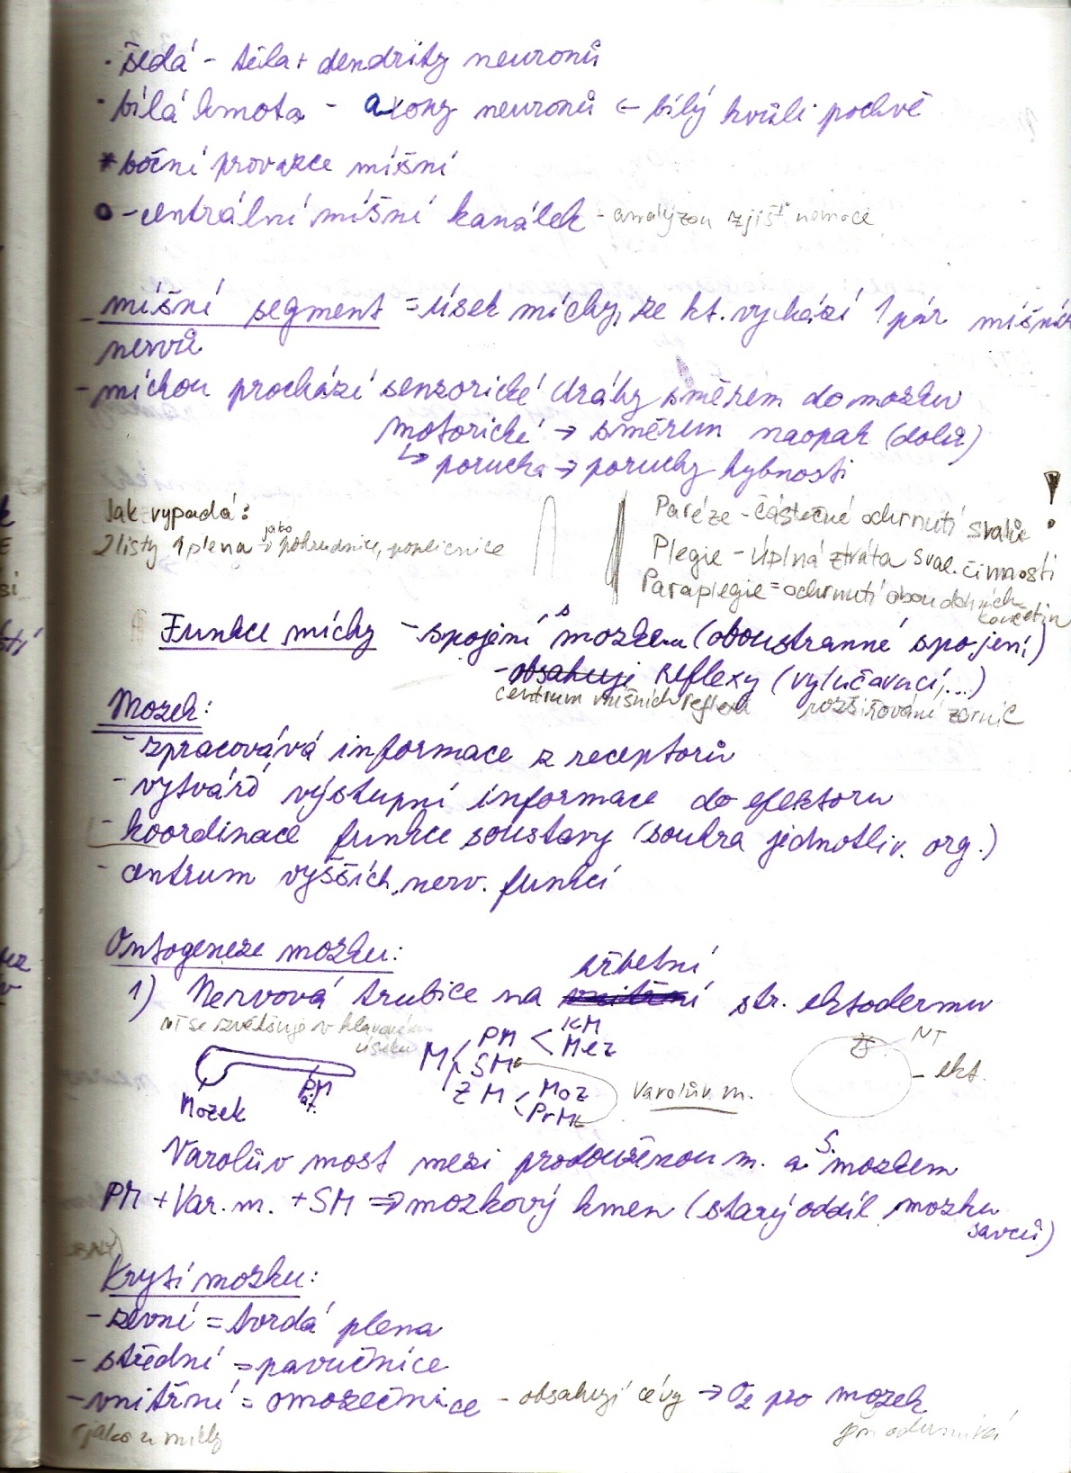 · šedá - těla + dendrity neuronů
· bílá hmota - axony neuronů ← bílý kvůli pochvě
* boční provazce míšní
o - centrální míšní kanálek - analýzou zjišť. nemoce
- míšní segment = úsek míchy, ze kt. vychází 1 pár míšních
nervů
- míchou prochází senzorické dráhy směrem do mozku
motorické → směrem naopak (dolů)
↳ porucha → poruchy hybnosti
Jak vypadá:
2 listy, 1 plena - jako pohrudnice, poplicnice
Paréze - částečné ochrnutí svalů !
Plegie - úplná ztráta sval. činnosti
Paraplegie = ochrnutí obou dolních
končetin
Funkce míchy - spojení s mozkem (oboustranné spojení)
- obsahuje reflexy (vylučovací,...)
centrum míšních reflexů rozšiřování zornic
Mozek:
- zpracovává informace z receptorů
- vytváří výstupní informace do efektoru
- koordinace funkce soustavy (souhra jednotliv. org.)
- centrum vyšších nerv. funkcí
Ontogeneze mozku:
hřbetní
1) Nervová trubice na vnitřní str. ektodermu
NT se zvětšuje v hlavovém
úseku
Mozek
PM
M
PM < KM
Mez
SM
ZM < Moz
PrM
Varolův. m.
NT
- ekt.
Varolův most mezi prodouženou m. a S. mozkem
PM + Var. m. + SM ⇒ mozkový kmen (starý oddíl mozku
savců)
Krytí mozku:
- zevní = tvrdá plena
- střední = pavučnice
- vnitřní = omozečnice - obsahují cévy → O2 pro mozek
jako u míchy